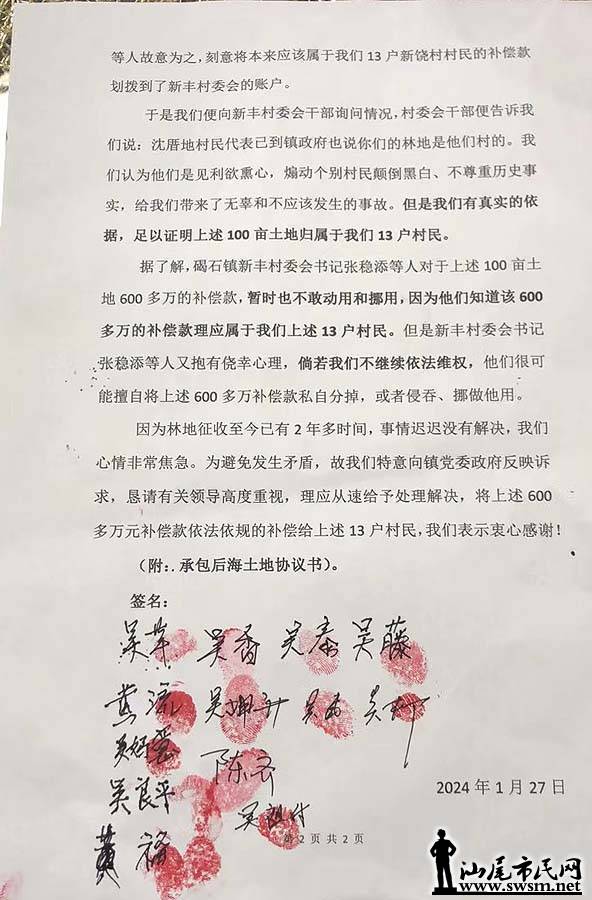 等人故意为之，刻意将本来应该属于我们 13 户新饶村村民的补偿款
划拨到了新丰村委会的账户。
于是我们便向新丰村委会干部询问情况，村委会干部便告诉我
们说：沈厝地村民代表已到镇政府也说你们的林地是他们村的。我
们认为他们是见利欲熏心，煽动个别村民颠倒黑白、不尊重历史事
实，给我们带来了无辜和不应该发生的事故。但是我们有真实的依
据，足以证明上述 100 亩土地归属于我们 13 户村民。
据了解，碣石镇新丰村委会书记张稳添等人对于上述 100 亩土
地 600 多万的补偿款，暂时也不敢动用和挪用，因为他们知道该 600
多万的补偿款理应属于我们上述 13 户村民。但是新丰村委会书记
张稳添等人又抱有侥幸心理，倘若我们不继续依法维权，他们很可
能擅自将上述 600 多万补偿款私自分掉，或者侵吞、挪做他用。
因为林地征收至今已有 2 年多时间，事情迟迟没有解决，我们
心情非常焦急。为避免发生矛盾，故我们特意向镇党委政府反映诉
求，恳请有关领导高度重视，理应从速给予处理解决，将上述 600
多万元补偿款依法依规的补偿给上述 13 户村民，我们表示衷心感谢！
（附：. 承包后海土地协议书）。
签名：
吴香 吴泰 吴藤
吴
陈
吴良平
2024 年 1 月 27 日
黄
第 2 页 共 2 页
汕尾市民网
www.swsm.net